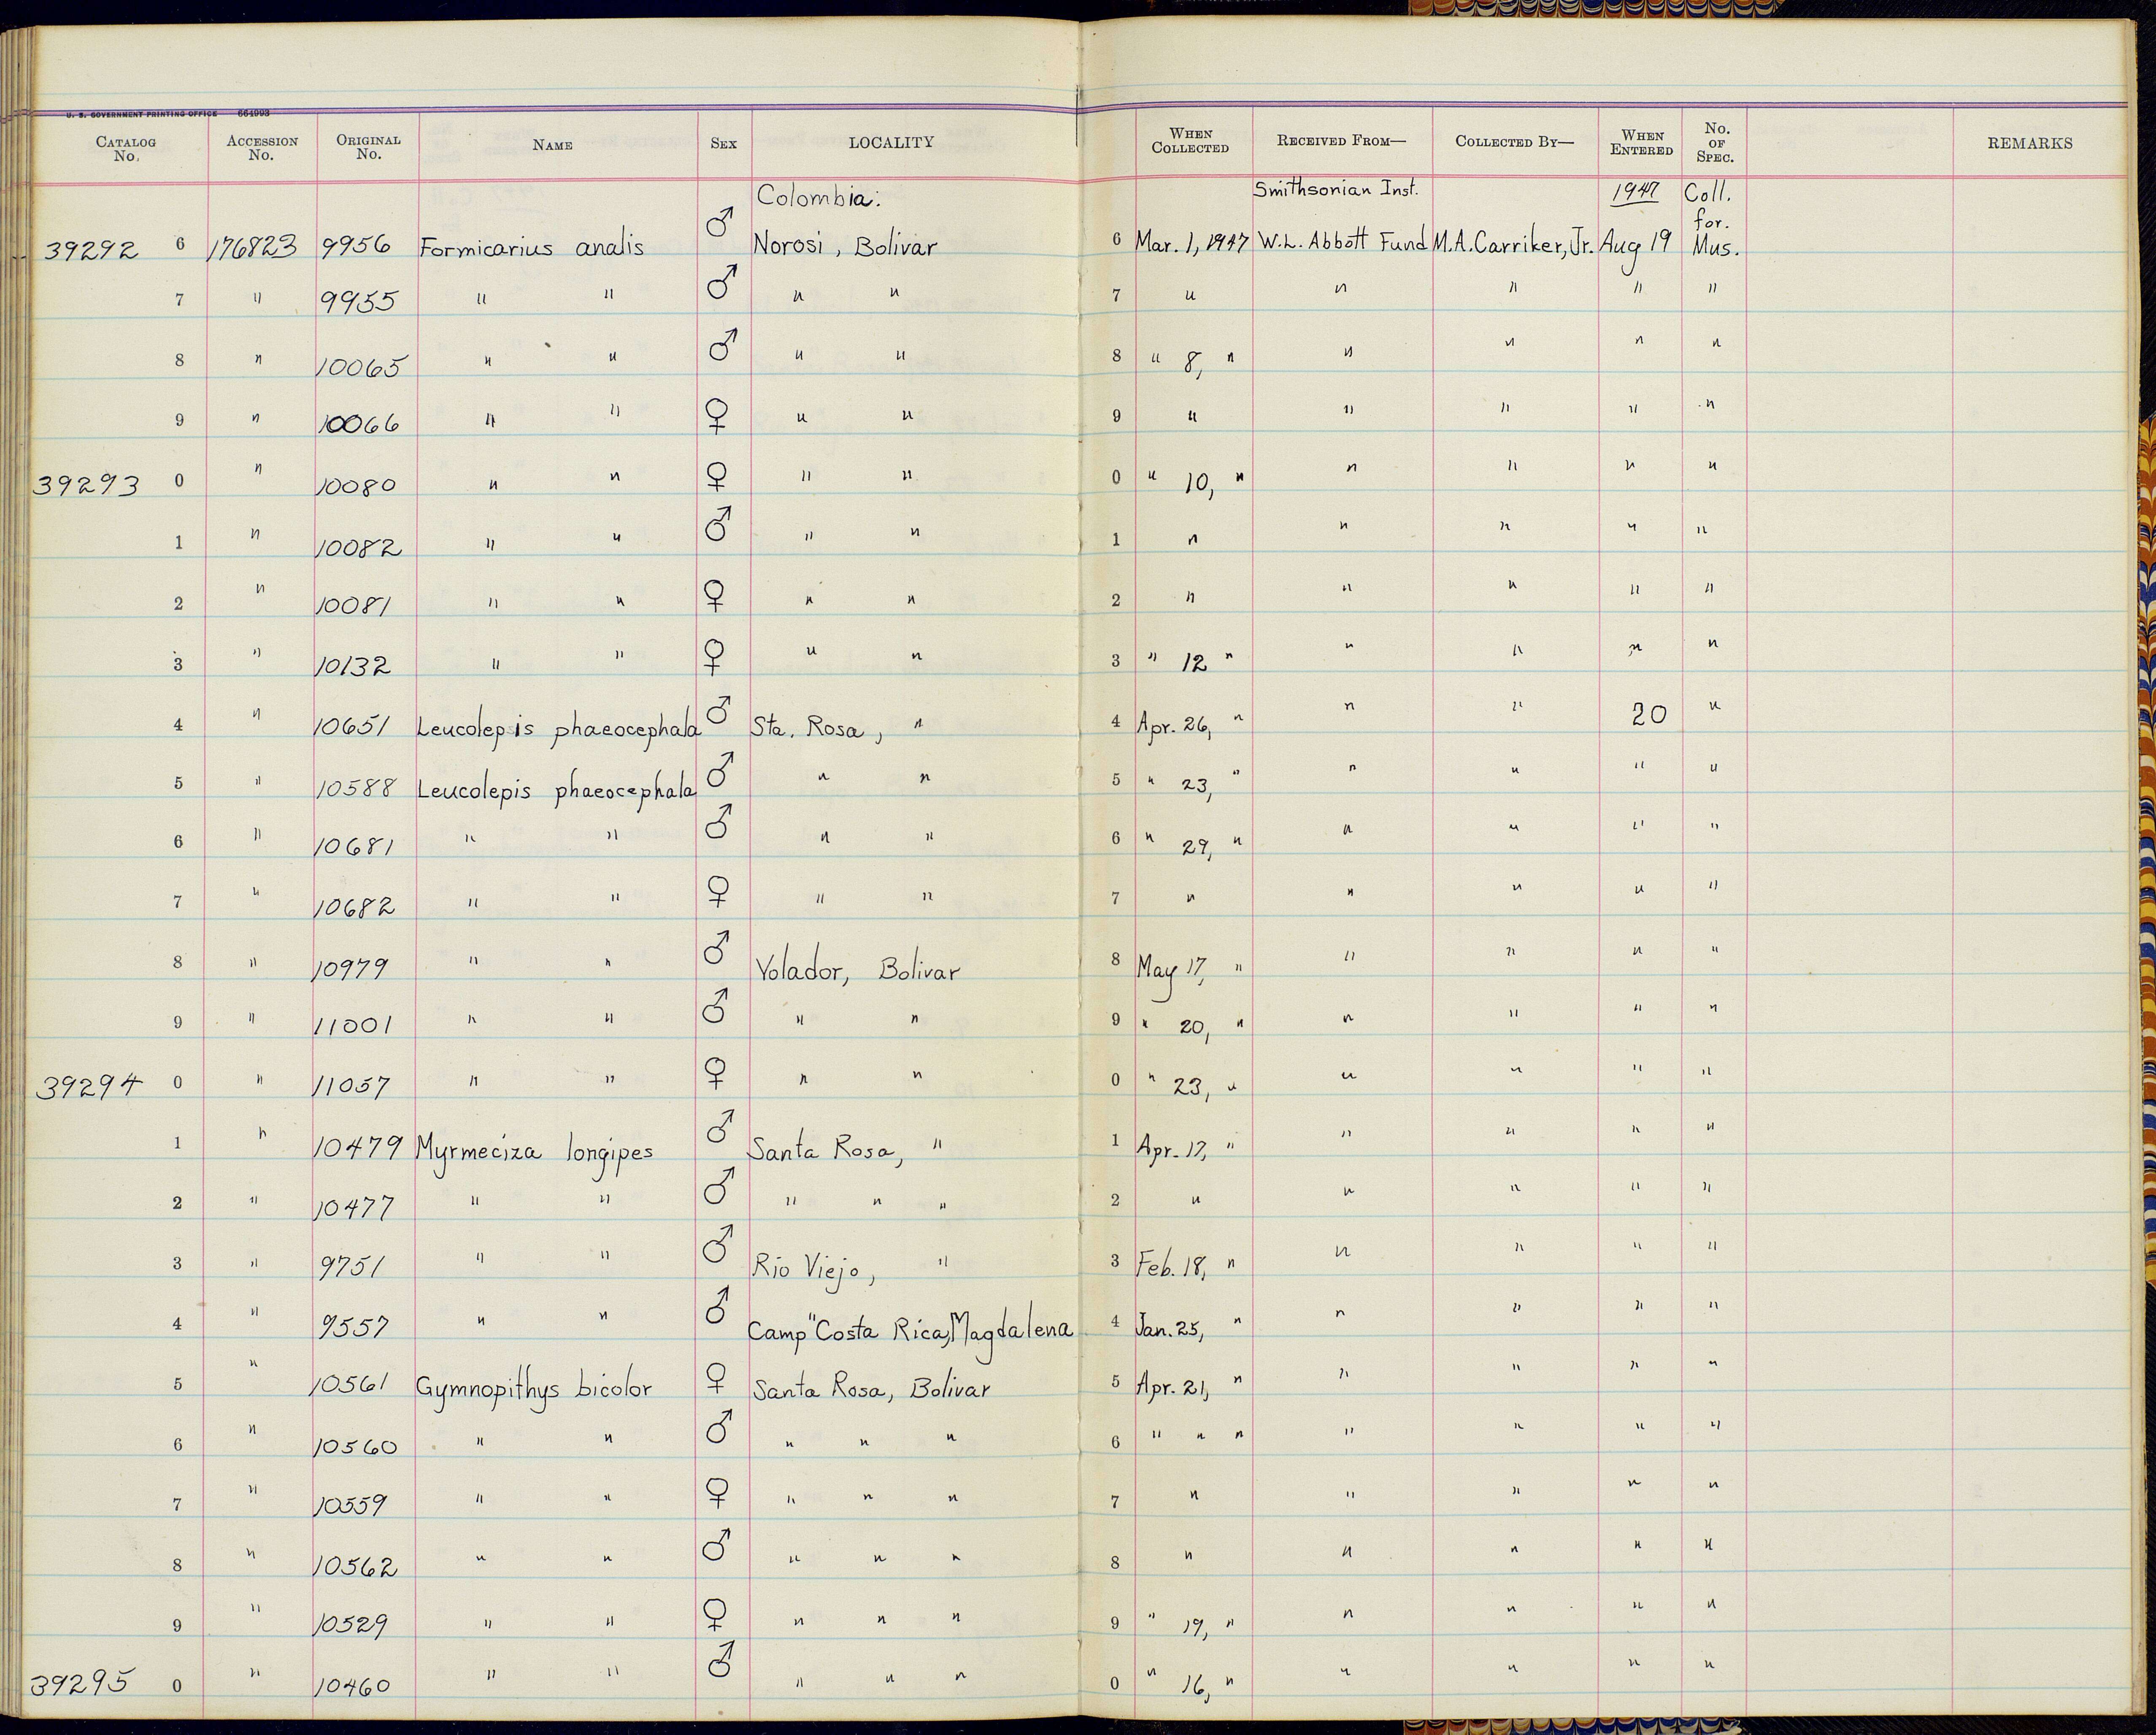 U. S. GOVERNMENT PRINTING OFFICE 664993
CATALOG No. ACCESSION No. ORIGINAL No. NAME SEX LOCALITY WHEN COLLECTED RECEIVED FROM— COLLECTED BY— WHEN ENTERED NO. OF SPEC. REMARKS
Colombia: Smithsonian Inst. 1947 Coll. for.
39292 6 176823 9956 Formicarius analis ♂ Norosi, Bolivar 6 Mar. 1, 1947 W.L. Abbott Fund M.A. Carriker, Jr. Aug 19 Mus.
7 " 9955 " " ♂ " " 7 " " " " "
8 " 10065 " " ♂ " " 8 " 8, " " " " "
9 " 10066 " " ♀ " " 9 " " " " "
39293 0 " 10080 " " ♀ " " 0 " 10, " " " " "
1 " 10082 " " ♂ " " 1 " " " " "
2 " 10081 " " ♀ " " 2 " " " " "
3 " 10132 " " ♀ " " 3 " 12 " " " " "
4 " 10651 Leucolepis phaeocephala ♂ Sta. Rosa, " 4 Apr. 26, " " " 20 "
5 " 10588 Leucolepis phaeocephala ♂ " " 5 " 23, " " " " "
6 " 10681 " " ♂ " " 6 " 29, " " " " "
7 " 10682 " " ♀ " " 7 " " " " "
8 " 10979 " " ♂ Volador, Bolivar 8 May 17, " " " " "
9 " 11001 " " ♂ " " 9 " 20, " " " " "
39294 0 " 11057 " " ♀ " " 0 " 23, " " " " "
1 " 10479 Myrmeciza longipes ♂ Santa Rosa, " 1 Apr. 17, " " " " "
2 " 10477 " " ♂ " " " 2 " " " " "
3 " 9751 " " ♂ Rio Viejo, " 3 Feb. 18, " " " " "
4 " 9557 " " ♂ Camp "Costa Rica, Magdalena 4 Jan. 25, " " " " "
5 " 10561 Gymnopithys bicolor ♀ Santa Rosa, Bolivar 5 Apr. 21, " " " " "
6 " 10560 " " ♂ " " " 6 " " " " " " "
7 " 10559 " " ♀ " " " 7 " " " " "
8 " 10562 " " ♂ " " " 8 " " " " "
9 " 10529 " " ♀ " " " 9 " 19, " " " " "
39295 0 " 10460 " " ♂ " " " 0 " 16, " " " " "